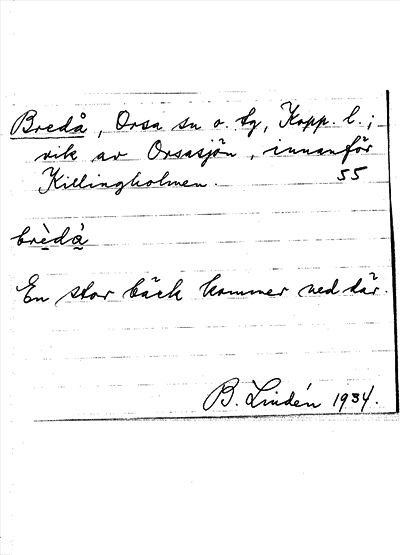 Bredå, Orsa sn o. tg, Kopp. l.;
vik av Orsasjön, innanför
Killingholmen. 55
brèdå̀
En stor bäck kommer ned där.
B. Lindén 1934.